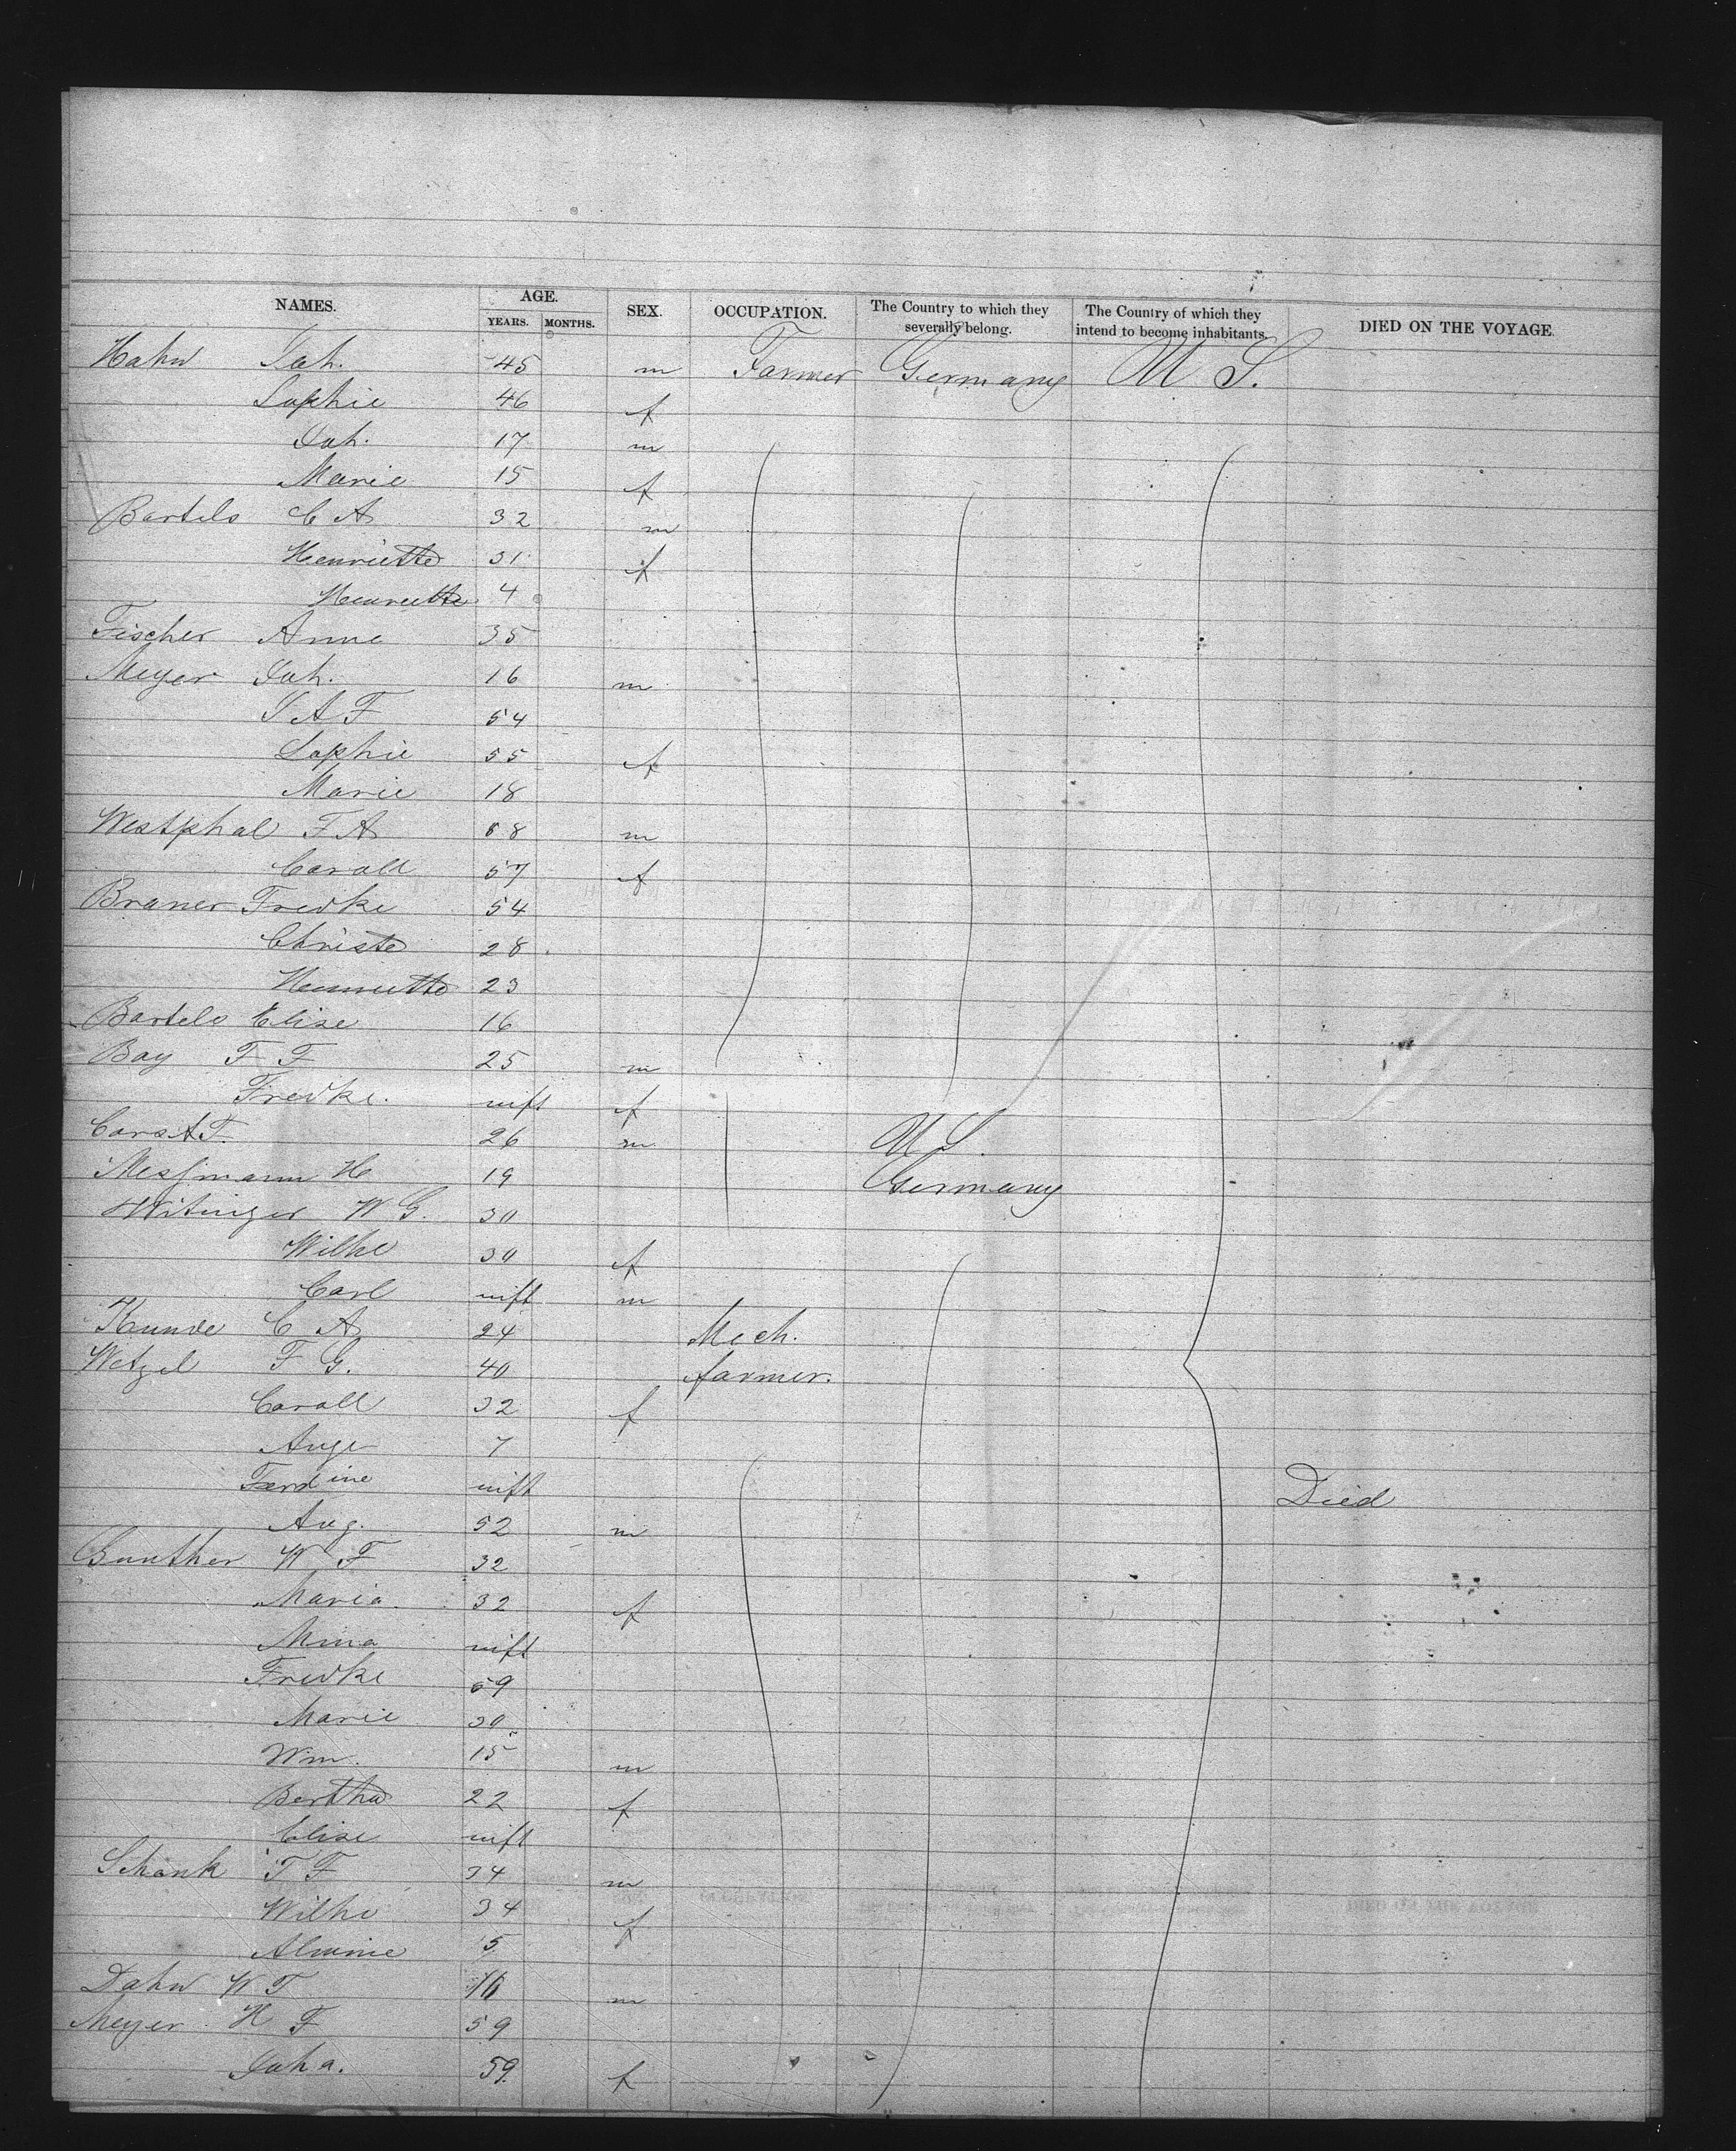 NAMES. AGE. YEARS. MONTHS. SEX. OCCUPATION. The Country to which they severally belong. The Country of which they intend to become inhabitants. DIED ON THE VOYAGE.
Hahn Joh. 45 m Farmer Germany U S.
Sophie 46 f
Joh. 17 m
Marie 15 f
Bartels C A 32 m
Henriette 31 f
Henriette 4
Fischer Anne 35
Meyer Joh. 16 m
J A F 54
Sophie 55 f
Marie 18
Westphal F A 68 m
Caroll 57 f
Braner Fredke 54
Christe 28
Henriette 23
Bartels Elise 16
Bay F F 25 m
Fredke. inft f
Carst F. 26 m U S.
Messmann H 19 Germany
Witinger W G. 30
Wilhe 30 f
Carl inft m
Kunde C A 24 Mech.
Wetzel F G. 40 farmer.
Caroll 32 f
Auge 7
Ferdine inft Died
Aug. 52 m
Gunther W F 32
Maria 32 f
Mina inft
Fredke 59
Marie 30
Wm. 15 m
Bertha 22 f
Elise inft
Schank T F 34 m
Wilhe 34 f
Alwine 5
Dahn W T m
Meyer H F 59
Joha. 59. f